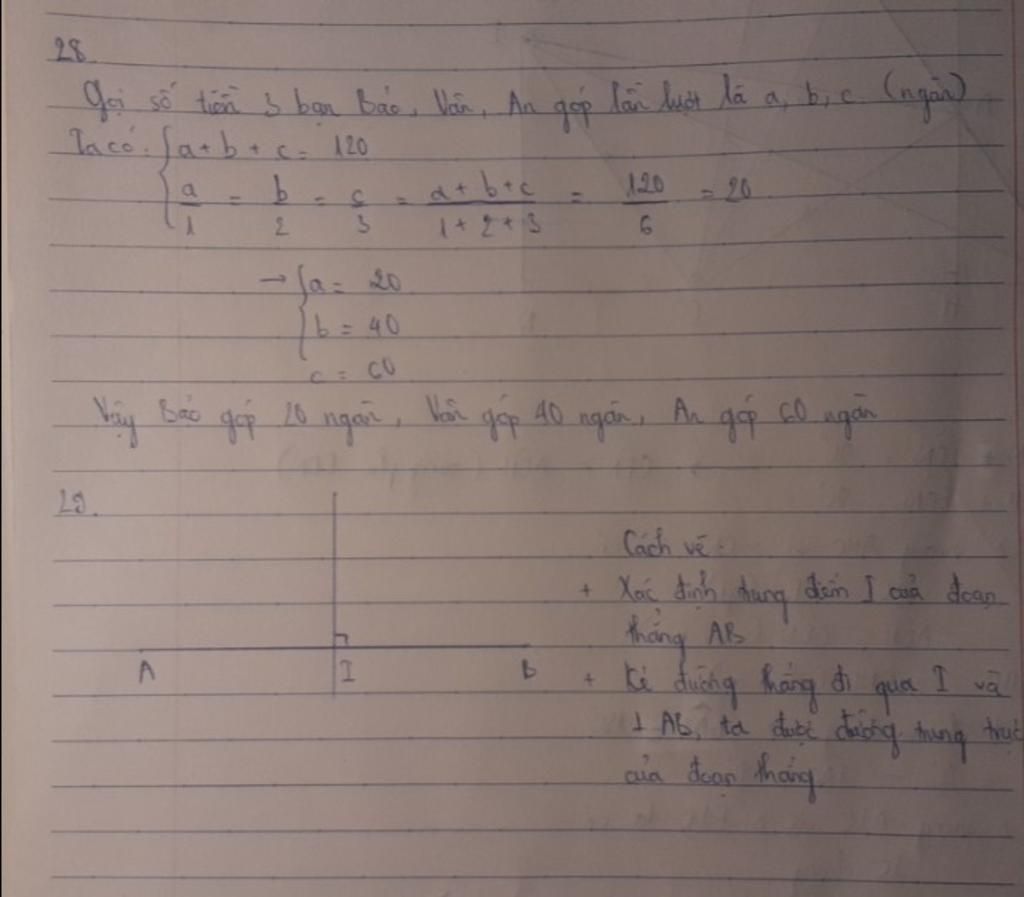 28.
Gọi số tiền 3 bạn Bảo, Vân, An góp lần lượt là a, b, c. (ngàn)
Ta có: { a + b + c = 120
a/1 = b/2 = c/3 = (a + b + c)/(1 + 2 + 3) = 120/6 = 20
→ { a = 20
b = 40
c = 60
Vậy Bảo góp 20 ngàn, Vân góp 40 ngàn, An góp 60 ngàn
29.
Cách vẽ:
+ Xác định trung điểm I của đoạn
thẳng AB
A I B
+ Kẻ đường thẳng đi qua I và
⊥ AB, ta được đường trung trực
của đoạn thẳng